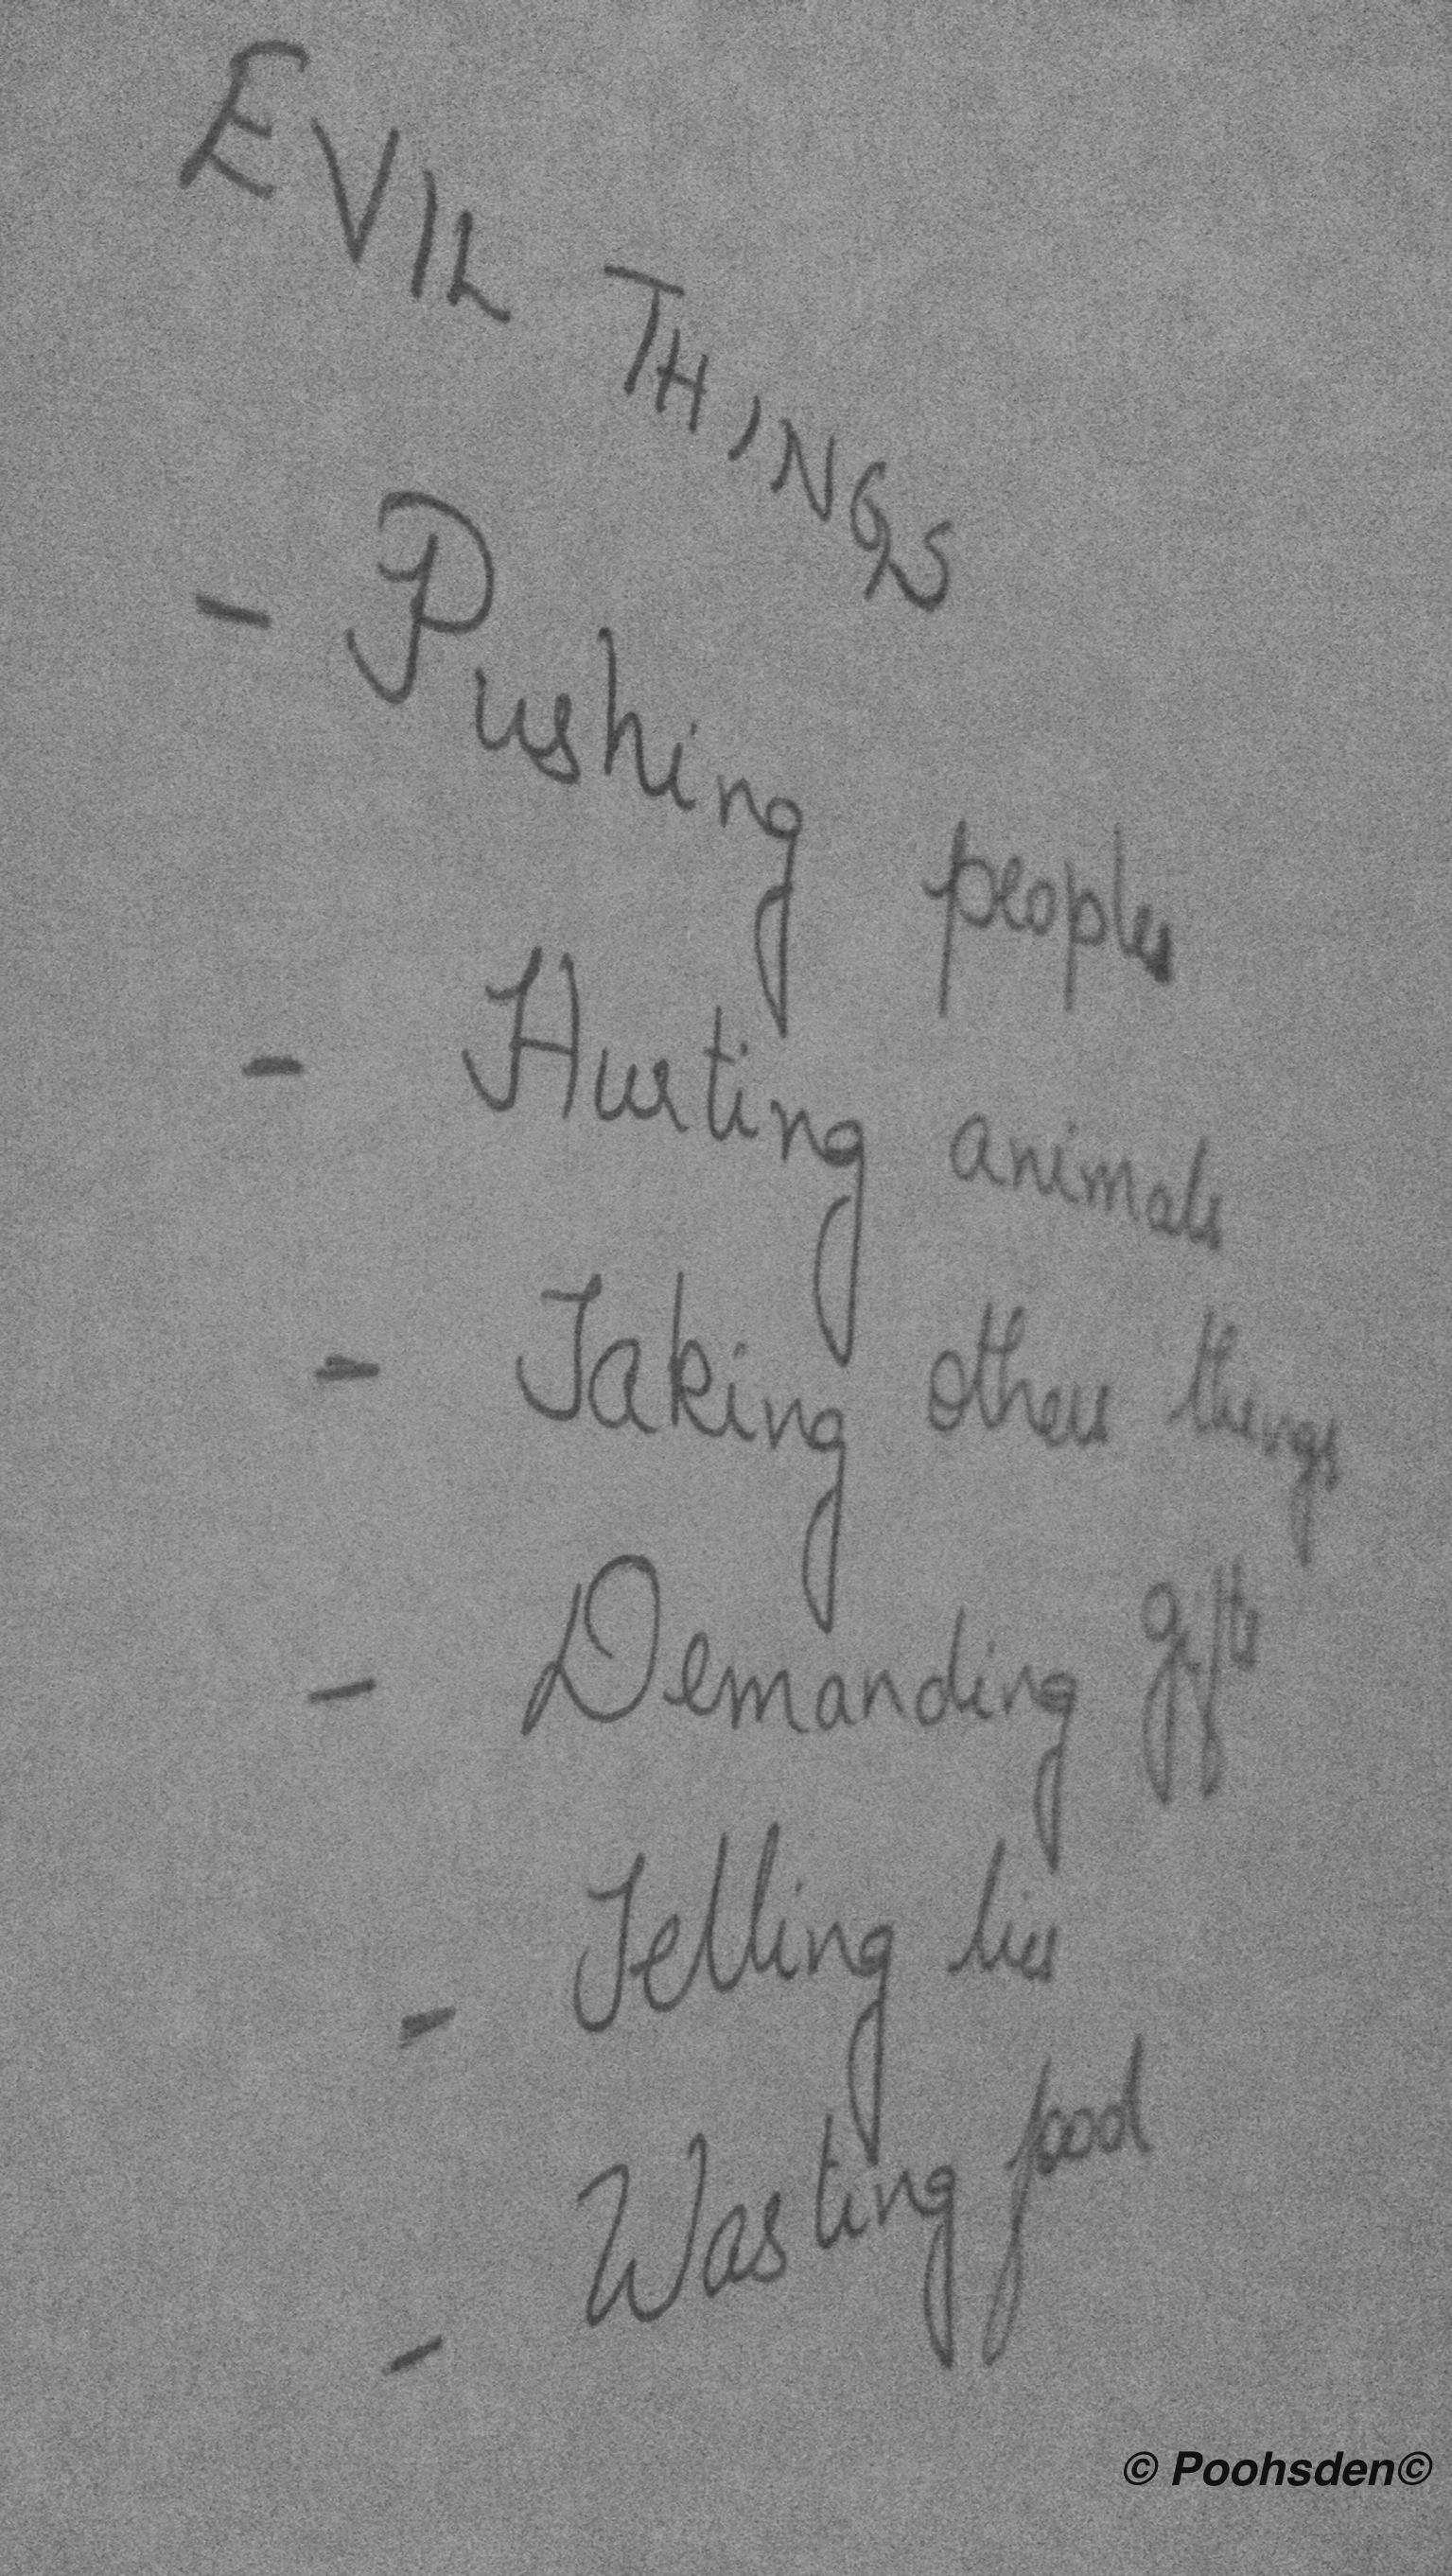 EVIL THINGS
- Pushing peoples
- Hurting animals
- Taking others things
- Demanding gifts
- Telling lies
- Wasting food
© Poohsden©